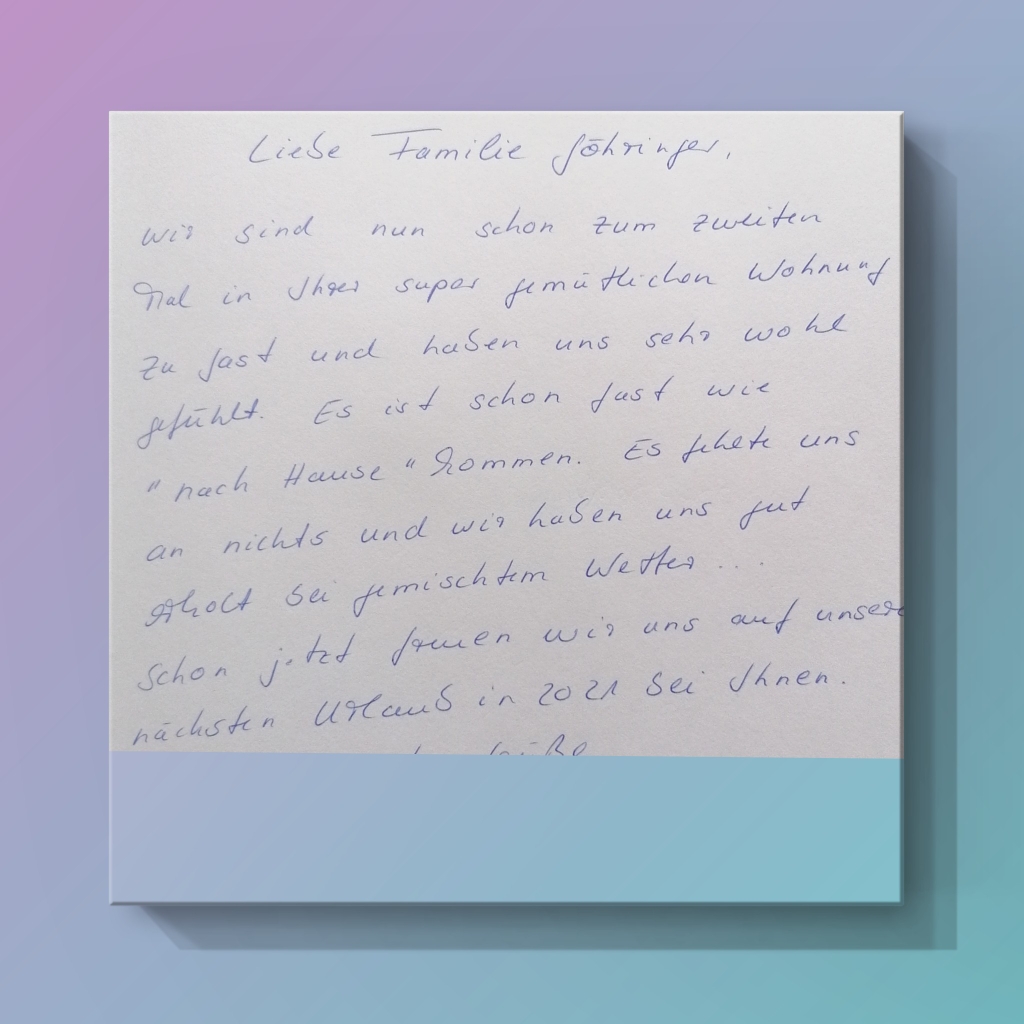 Liebe Familie Göhringer,
wir sind nun schon zum zweiten
Mal in Ihrer super gemütlichen Wohnung
zu Gast und haben uns sehr wohl
gefühlt. Es ist schon fast wie
"nach Hause" kommen. Es fehlte uns
an nichts und wir haben uns gut
erholt bei gemischtem Wetter ...
Schon jetzt freuen wir uns auf unsere
nächsten Urlaub in 2021 bei Ihnen.